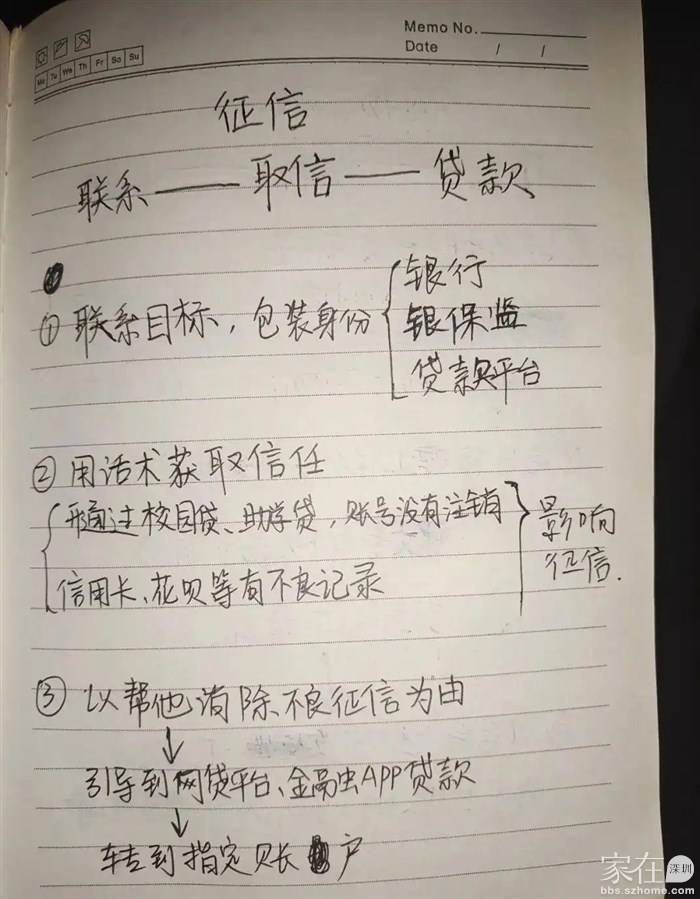 Memo No.
Date / /
Mo Tu We Th Fr Sa Su
征信
联系——取信——贷款
① 联系目标，包装身份
银行
银保监
贷款平台
② 用话术获取信任
通过校园贷、助学贷，账号没有注销
信用卡、花呗等有不良记录
影响
征信.
③ 以帮他消除不良征信为由
↓
引导到网贷平台、金融APP贷款
↓
转到指定账户
家在深圳
bbs.szhome.com